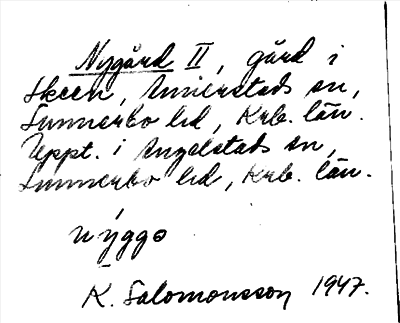 Nygård II, gård i
Skeen, Annerstads sn,
Sunnerbo hd, Krb. län.
Uppt. i Angelstads sn,
Sunnerbo hd, Krb. län.
nýggə
K. Salomonsson 1947.